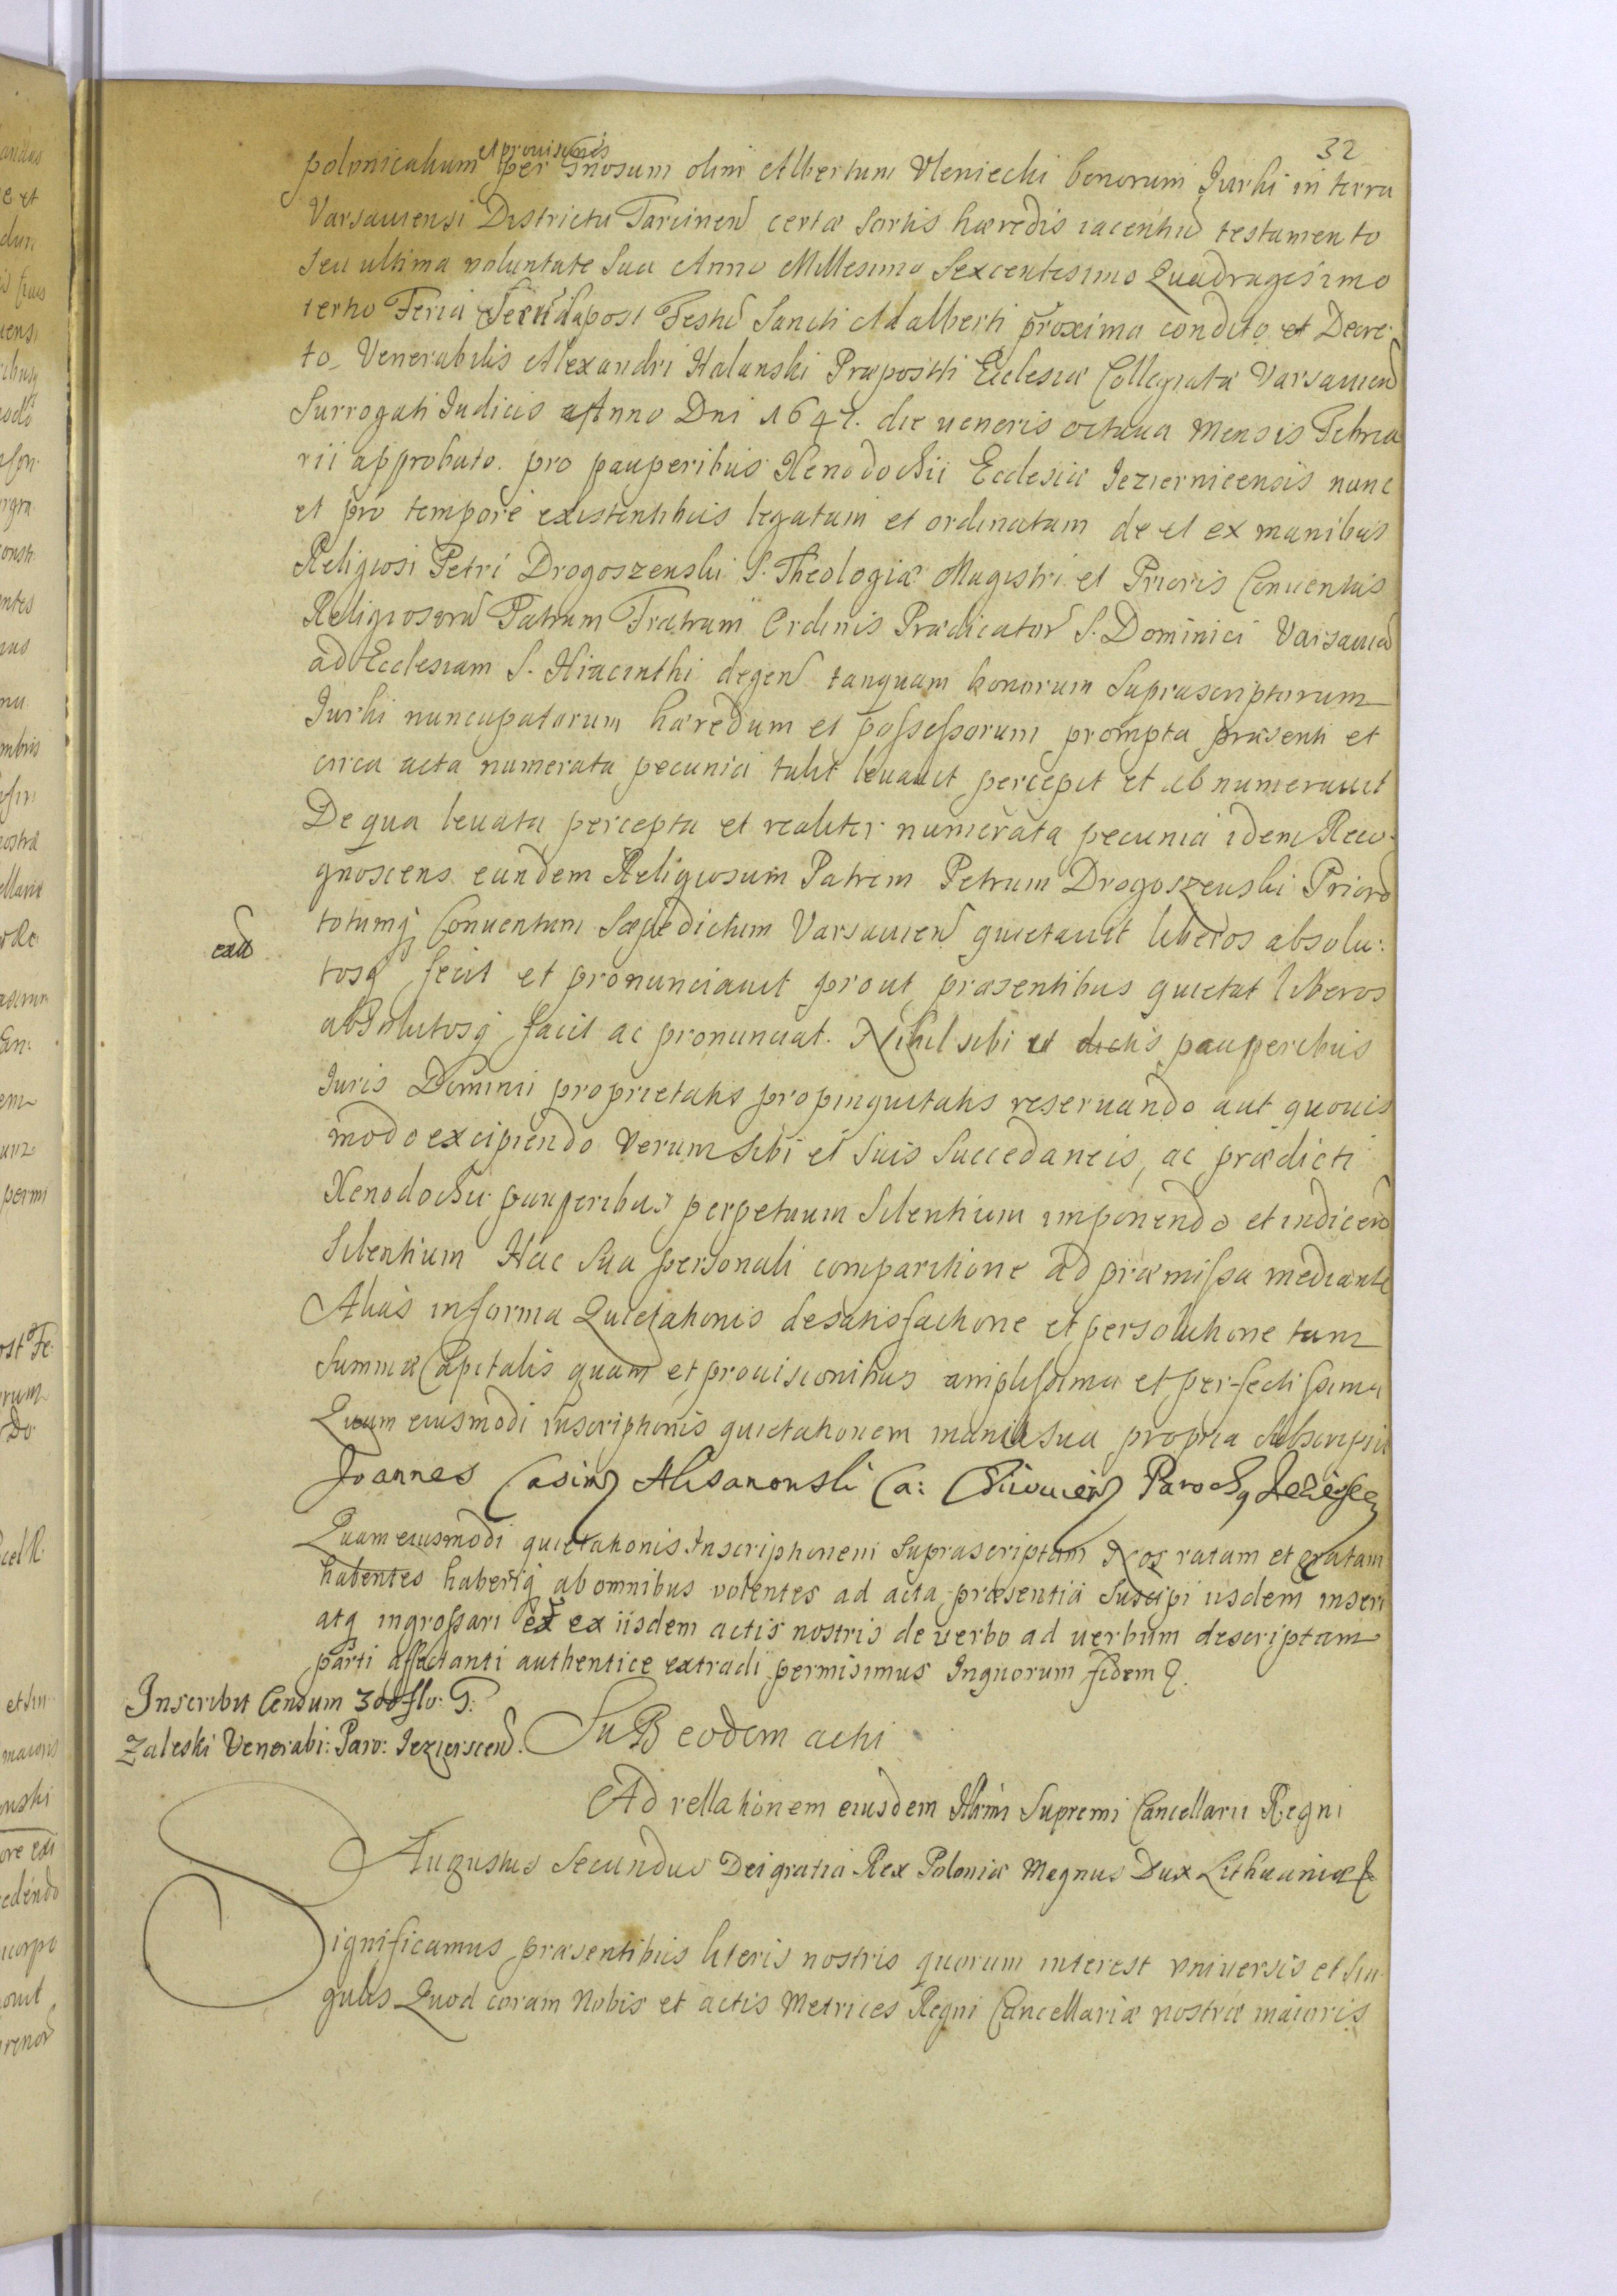 32
polonicalium et prouisionis per Gnosum olim Albertum Uleniecki bonorum Jurki in terra
Varsauiensi Districtu Tarcinen certæ sortis hæredis iacentiu testamento
seu ultima voluntate sua Anno Millesimo Sexcentesimo Quadragesimo
tertio Feria Secunda post Festu Sancti Adalberti proxima condito et Decre:
to Venerabilis Alexandri Halanski Præpositi Ecclesiæ Collegiatæ Varsauien
Surrogati Iudicis Anno Dni 1647. die ueneris octaua Mensis Februa
rii approbato. pro pauperibus Xenodochii Ecclesiæ Jeziernicensis nunc
et pro tempore existentibus legatam et ordinatam de et ex manibus
Religiosi Petri Drogoszeuski S. Theologiæ Magistri et Prioris Conuentus
Religiosoru Patrum Fratrum Ordinis Prædicator S. Dominici Varsauiæ
ad Ecclesiam S. Hiacinthi degen tanquam bonorum Suprascriptorum
Jurki nuncupatorum hæredum et possessorum prompta præsenti et
circa acta numerata pecunia tulit leuauit percepit et abnumerauit
De qua leuata percepta et realiter numerata pecunia idem Reco-
gnoscens eundem Religiosum Patrem Petrum Drogoszeuski Priore
totumq Conuentum Sæpedictum Varsauien quietauit liberos absolu:
exd
tosq fecit et pronunciauit prout præsentibus quietat liberos
absolutosq facit ac pronunciat. Nihil sibi et dictis pauperibus
Iuris Dominii proprietatis propinquitatis reseruando aut quouis
modo excipiendo Verum sibi et suis Succedaneis, ac prædicti
Xenodochii pauperibus perpetuum Silentium imponendo et indicen
Silentium Hac Sua personali comparitione ad præmissa mediante
Alias in forma Quietationis de satisfactione et persolutione tam
Summæ Capitalis quam et prouisionibus amplissima et perfectissima
Quam eiusmodi inscriptionis quietationem manu sua propria subscripsit
Joannes Casim
Quam eiusmodi quietationis Inscriptionem Suprascriptam Nos ratam et gratam
habentes haberiq ab omnibus volentes ad acta præsentia Suscipi iisdem inseri
atq ingrossari et ex iisdem actis nostris de uerbo ad uerbum descriptam
parti affectanti authentice extradi permisimus Inquorum fidem &.
Inscribit Censum 300 flo: G:
Zaleski Venerabi: Paro: Jeziersien.
Sub eodem actu
Ad rellationem eiusdem Illrmi Supremi Cancellarii Regni
Augustus Secundus Dei gratia Rex Poloniæ Magnus Dux Lithuaniæ &
Significamus præsentibus literis nostris quorum interest vniuersis et sin
gulis Quod coram Nobis et actis Metrices Regni Cancellariæ nostræ maioris